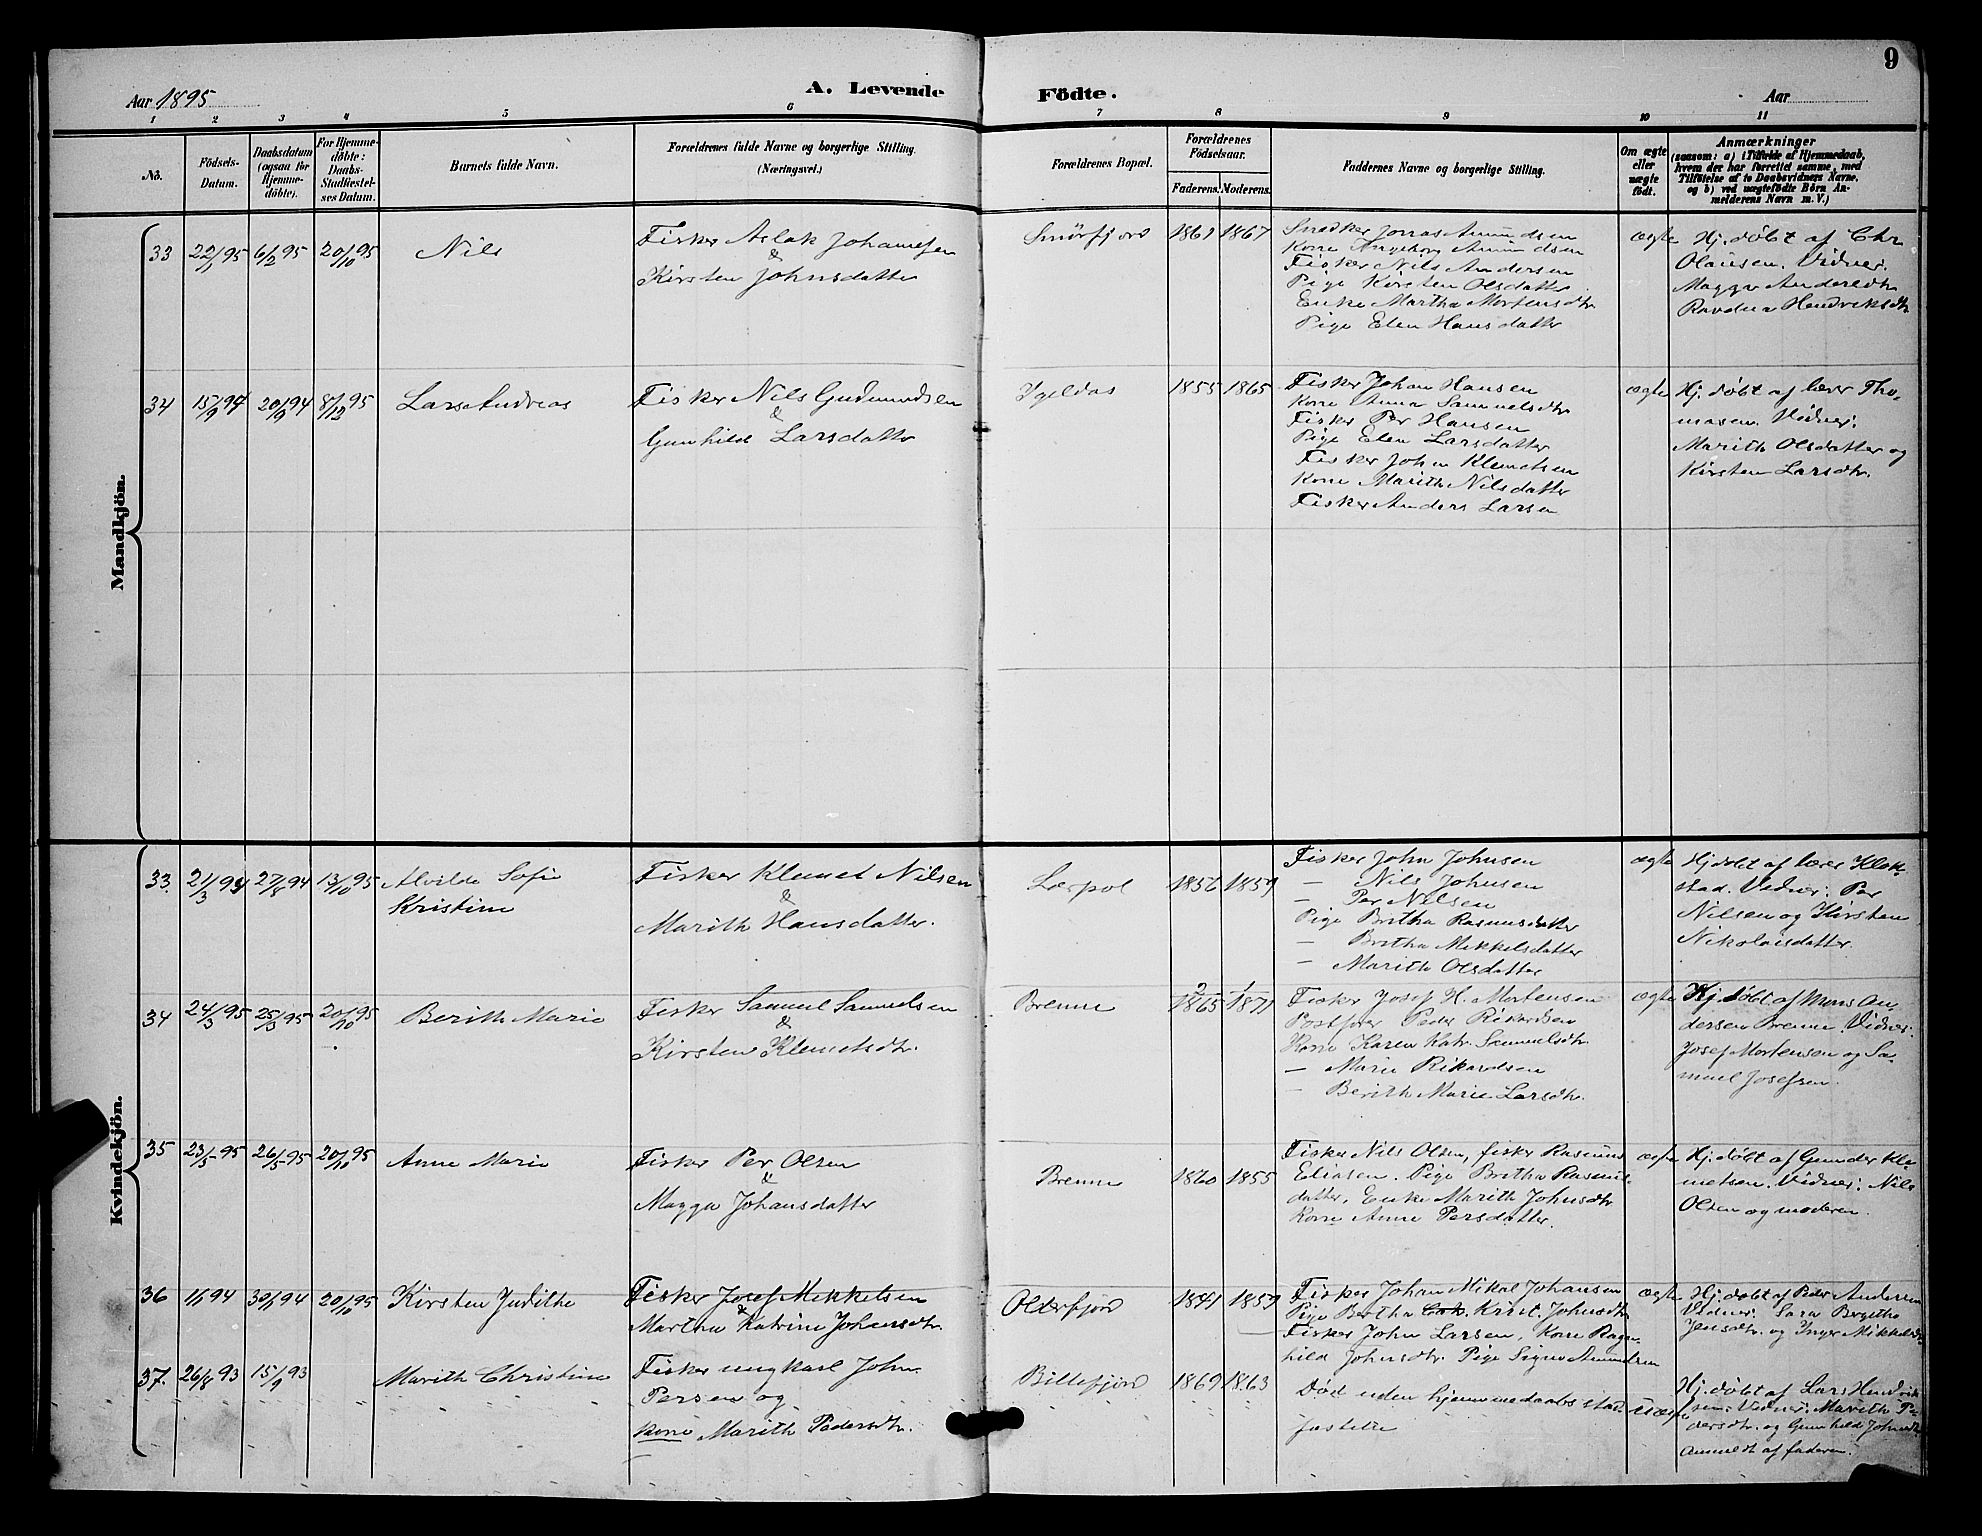 9
Aar 1895
A. Levende Födte.
Aar
1 2 3 4 5 6 7 8 9 10 11
No.
Födsels-Datum.
Daabsdatum (ogsaa for Hjemme-döbte).
For Hjemme-döbte: Daabs-Stadfæstel-ses Datum.
Barnets fulde Navn.
Forældrenes fulde Navne og borgerlige Stilling.
(Næringsvei.)
Forældrenes Bopæl.
Forældrenes Födselsaar.
Faderens. Moderens.
Faddernes Navne og borgerlige Stilling.
Om ægte eller uægte födt.
Anmærkninger
(saasom: a) i Tilfælde af Hjemmedaab,
hvem der har forrettet samme, med
Tilföielse af to Daabsvidners Navne,
og b) ved uægtefödte Börn An-
melderens Navn m. V.)
Mandkjön.
33 22/1 95 6/2 95 20/10 95 Nils
Fisker Aslak Johannesen
&
Kirsten Johnsdatter
Smörfjord 1861 1867
Snedker Jonas Amundsen
Kone Ingeborg Amundsen
Fisker Nils Andersen
Pige Kirsten Olsdatter
Enke Martha Mortensdtr.
Pige Elen Hansdatter
ægte
Hj. döbt af Chr.
Olausen. Vidner:
Magga Andersdtr.
Ravdna Hendriksdtr.
34 15/9 94 20/9 94 8/12 95 Lars Andreas
Fisker Nils Gudmundsen
&
Gunhild Larsdatter
Igeldas 1855 1865
Fisker Johan Hansen
Kone Anna Samuelsdtr
Fisker Per Hansen
Pige Elen Larsdatter
Fisker John Klemetsen
Kone Marith Nilsdatter
Fisker Anders Larsen
ægte
Hj. döbt af lærer Tho-
masen. Vidner:
Marith Olsdatter og
Kirsten Larsdtr.
Kvindekjön.
33. 21/3 94 27/8 94 13/10 95 Alvilde Sofie
Kristine
Fisker Klemet Nilsen
&
Marith Hansdatter.
Lerpol 1856 1859
Fisker John Johnsen
— Nils Johnsen
— Per Nilsen
Pige Britha Rasmusdatter
— Britha Mikkelsdatter
— Marith Olsdatter
ægte
Hj. döbt af lærer Klok-
stad. Vidner: Per
Nilsen og Kirsten
Nikolaisdatter.
34 24/3 95 25/3 95 20/10 95 Berith Marie
Fisker Samuel Samuelsen
&
Kirsten Klemetsdtr.
Brenne 2 1865 1 1871
Fisker Josef H. Mortensen
Postfører Peder Rikardsen
Kone Karen Katr. Samuelsdtr.
— Marie Rikardsen
— Berith Marie Larsdtr.
ægte
Hj. döbt af Mons An-
dersen Brenne. Vidner:
Josef Mortensen og Sa-
muel Josefsen.
35 23/5 95 26/5 95 20/10 95 Anne Marie
Fisker Per Olsen
&
Magga Johansdatter
Brenne 1860 1855
Fisker Nils Olsen, fisker Rasmus
Eliasen. Pige Britha Rasmus-
datter, Enke Marith Johnsdtr
Kone Anne Persdatter.
ægte
Hj. döbt af Gunder Kle-
metsen. Vidner: Nils
Olsen og moderen.
36 1/1 94 30/1 94 20/10 95 Kirsten Judithe
Fisker Josef Mikkelsen
&
Martha Katrine Johansdtr.
Olderfjord 1841 1859
Fisker Johan Mikal Johansen
Pige Bertha Krist. Johnsdtr.
Fisker John Larsen, Kone Ragn-
hild Johnsdtr. Pige Signe Amundsen
ægte
Hj. döbt af Peder Andersen
Vidner: Sara Birgitha
Jensdtr. og Inger Mikkelsdtr.
37. 26/8 93 15/9 93 Marith Christine
Fisker ungkarl John
Persen og
kone Marith Pedersdtr.
Billefjord 1869 1863
Död uden hjemmedaabs stad-
fæstelse
uægte
Hj. döbt af Lars Hendrik
sen. Vidner: Marith Pe-
dersdtr. og Gunhild Johnsdtr.
anmeldt af faderen.